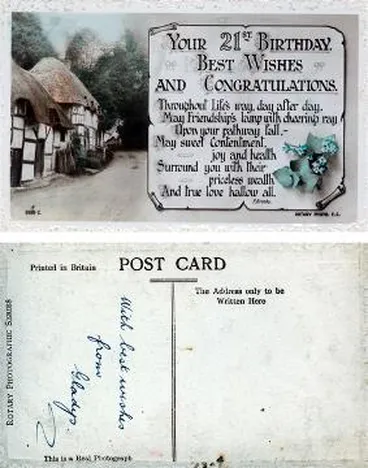 YOUR 21ST BIRTHDAY.
BEST WISHES
AND CONGRATULATIONS.
Throughout Life's way, day after day,
May Friendship's lamp with cheering ray
Upon your pathway fall,-
May sweet Contentment,
joy and health
Surround you with their
priceless wealth
And true love hallow all.
ROTARY PHOTO, E.C.
Printed in Britain
POST CARD
The Address only to be
Written Here
ROTARY PHOTOGRAPHIC SERIES
With best wishes
from
Gladys.
This is a Real Photograph